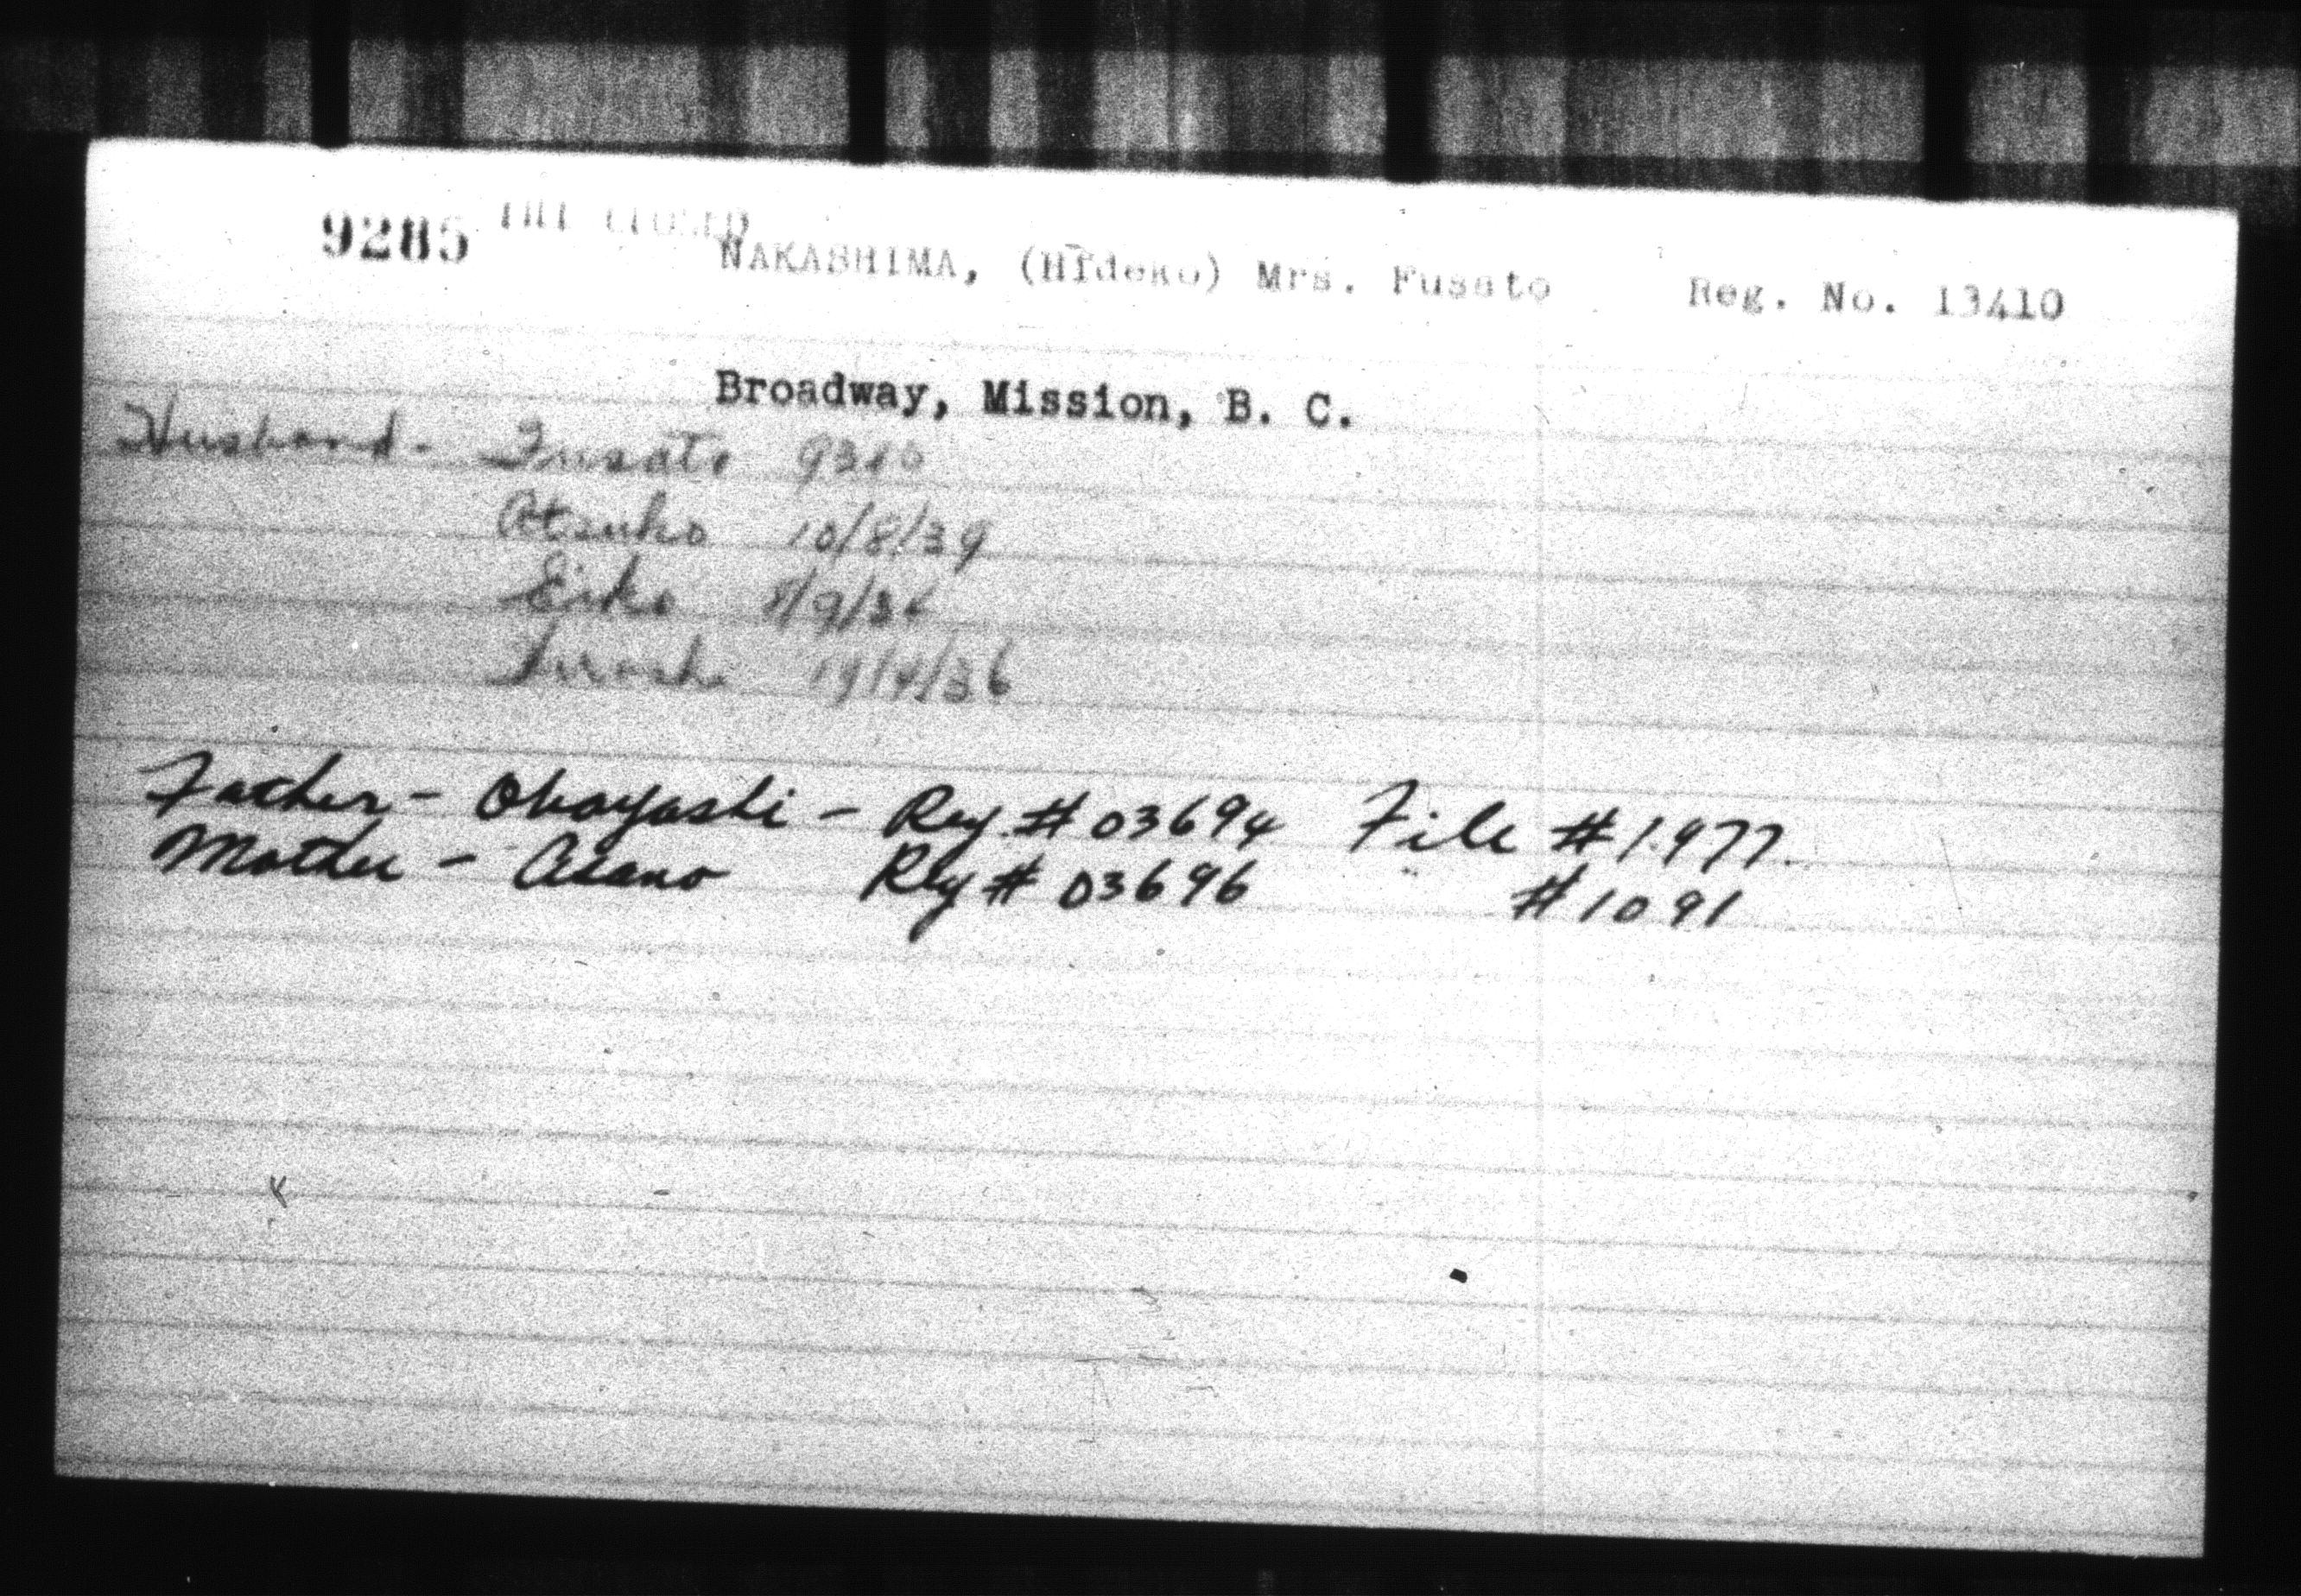 9285 FILE CLOSED
NAKASHIMA, (Hideko) Mrs. Fusato Reg. No. 13410
Broadway, Mission, B. C.
Husband - Fusato 9310
Atsuko 10/8/39
Eiko
Father - Obayashi - Reg. # 03694 File # 1977
Mother - Asano Reg # 03696 " #1091